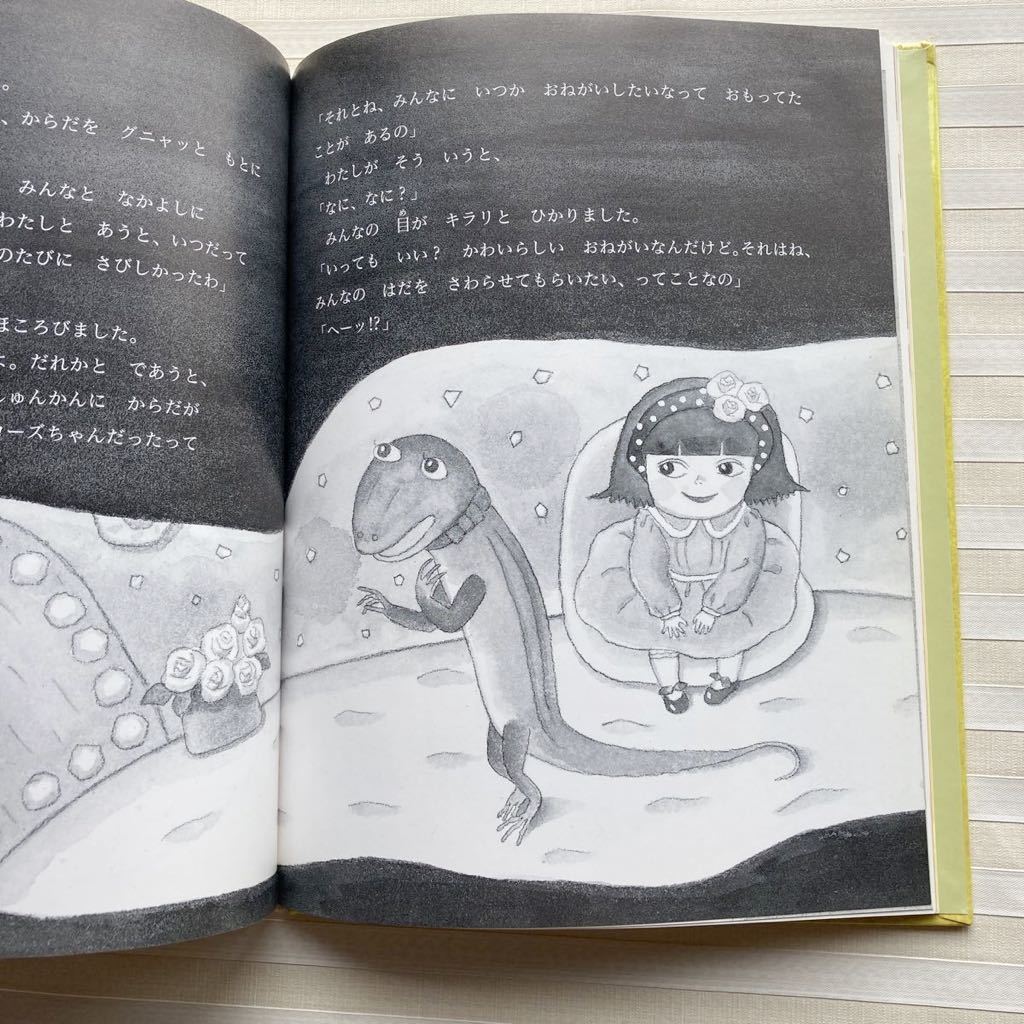 。
、からだを　グニャッと　もとに
みんなと　なかよしに
わたしと　あうと、いつだって
のたびに　さびしかったわ」
ほころびました。
よ。だれかと　であうと、
しゅんかんに　からだが
ローズちゃんだったって
「それとね、みんなに　いつか　おねがいしたいなって　おもってた
ことが　あるの」
わたしが　そう　いうと、
「なに、なに？」
みんなの　目が　キラリと　ひかりました。
「いっても　いい？　かわいらしい　おねがいなんだけど。それはね、
みんなの　はだを　さわらせてもらいたい、ってことなの」
「ヘーッ!?」